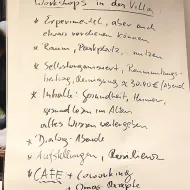 Workshops in der Villa
* Experimentel, aber auch
etwas verdienen können
* Raum, Parkplatz, nutzen
* Selbstorganisiert, Raumnutzungs-
beitrag, Reinigung ≈ 30-40 €/Abend
* Inhalte: Gesundheit, Humor,
gesund leben im Alter
altes Wissen weitergeben
* Dialog-Abende
* Aufstellungen,
* CAFE + Coworking
+ Omas Rezepte